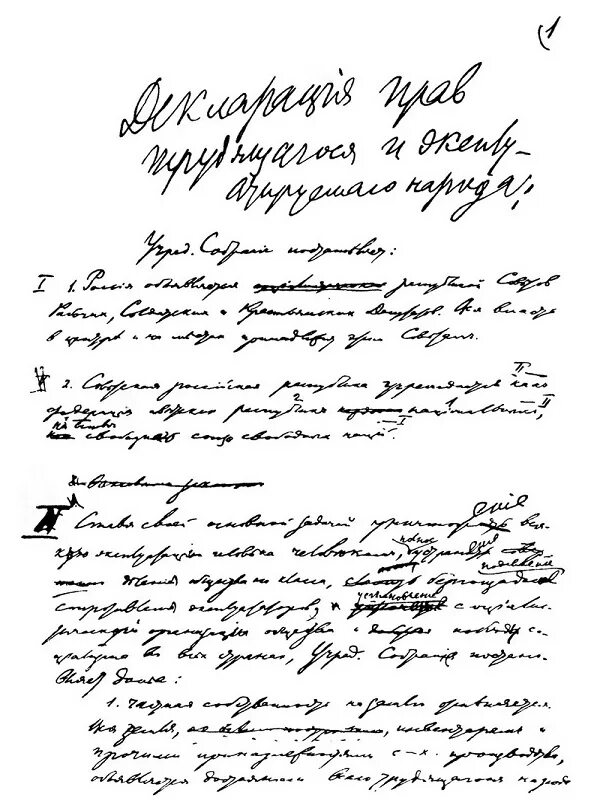 1
Декларація прав
трудящагося и эксплу-
атируемаго народа:
Учред. Собраніе постановляет:
I 1. Россія объявляется республикой Совѣтов
Рабочих, Солдатских и Крестьянских Депутатов. Вся власть
в центрѣ и на мѣстах принадлежит этим Совѣтам.
2. Совѣтская россійская республика учреждается II
федерація совѣтских республик 2 національных 1, II
на основѣ свободнаго союза свободных націй. I
II Ставя своей основной задачей уничтоженіе вся-
кой эксплуатаціи человѣка человѣком, полное устраненіе
дѣленія общества на классы, безпощадное подавленіе
сопротивленія эксплуататоров, установленіе соціалис-
тической организаціи общества и побѣду со-
ціализма во всѣх странах, Учред. Собраніе постано-
вляет далѣе:
1. Частная собственность на землю отмѣняется.
Вся земля, с инвентарем и
прочими принадлежностями с.-х. производства,
объявляется достояніем всего трудящагося народа